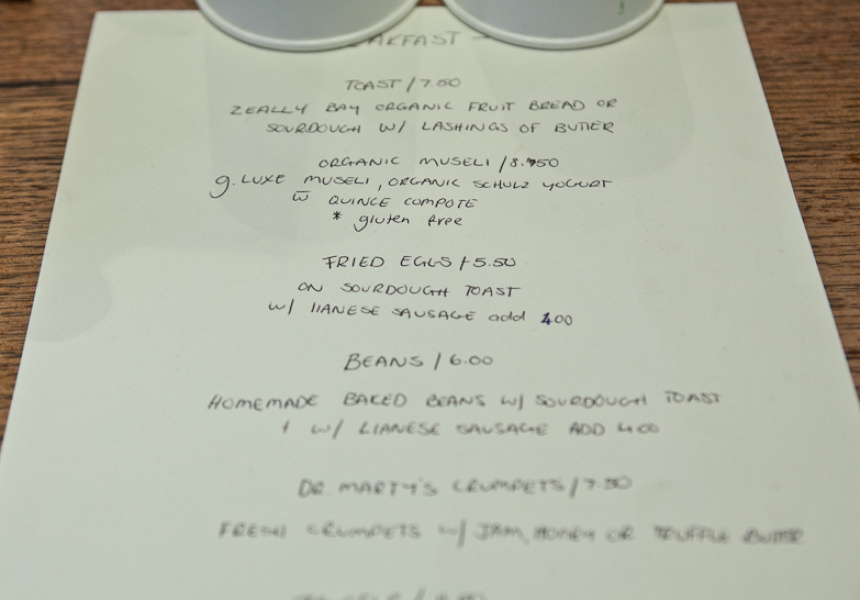 AKFAST -
TOAST / 7.50
ZEALLY BAY ORGANIC FRUIT BREAD OR
SOURDOUGH W/ LASHINGS OF BUTTER
ORGANIC MUSELI / 8.50
g.LUXE MUSELI, ORGANIC SCHULZ YOGURT
w̄ QUINCE COMPOTE
* gluten free
FRIED EGGS / 5.50
ON SOURDOUGH TOAST
W/ LIANESE SAUSAGE add 400
BEANS / 6.00
HOMEMADE BAKED BEANS W/ SOURDOUGH TOAST
+ W/ LIANESE SAUSAGE ADD 4.00
DR. MARTY'S CRUMPETS / 7.50
FRESH CRUMPETS W/ JAM, HONEY OR TRUFFLE BUTTER